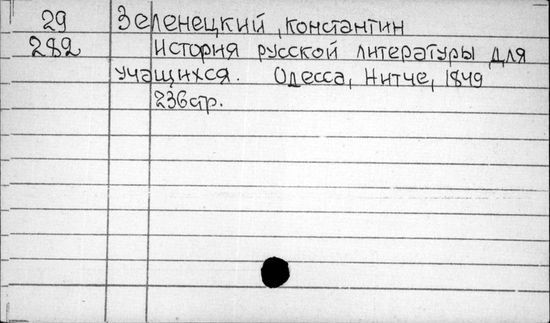 29 Зеленецкий, Константин
282 История русской литературы для
учащихся. Одесса, Нитче, 1849
236 стр.